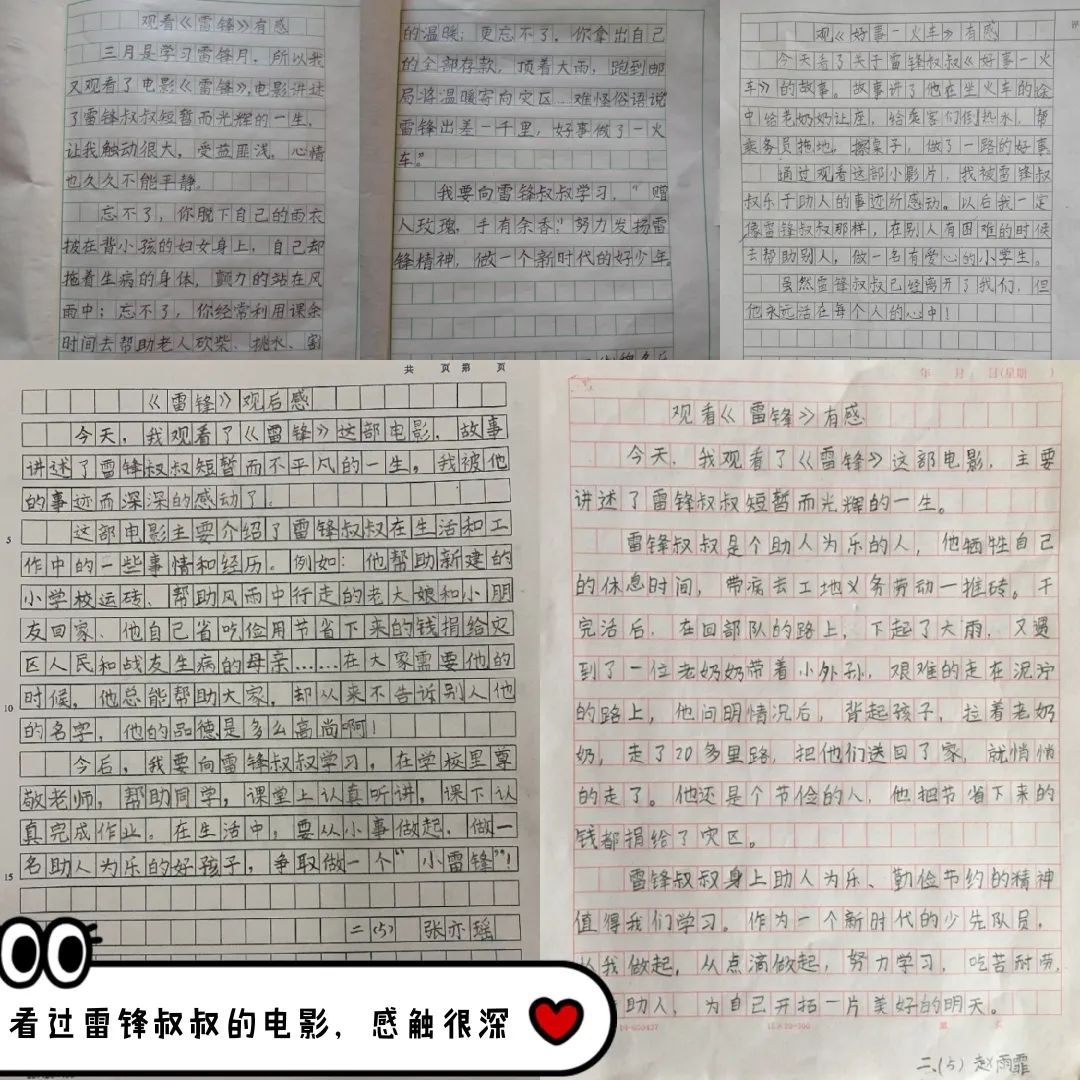 观看《雷锋》有感
三月是学习雷锋月，所以我
又观看了电影《雷锋》，电影讲述
了雷锋叔叔短暂而光辉的一生，
让我触动很大，受益匪浅，心情
也久久不能平静。
忘不了，你脱下自己的雨衣
披在背小孩的妇女身上，自己却
拖着生病的身体，颤力的站在风
雨中；忘不了，你经常利用课余
时间去帮助老人砍柴、挑水、割
的温暖；更忘不了，你拿出自己
的全部存款，顶着大雨，跑到邮
局将温暖寄向灾区…难怪俗语说
雷锋出差一千里，好事做了一火
车。”
我要向雷锋叔叔学习，“赠
人玫瑰，手有余香”，努力发扬雷
锋精神，做一个新时代的好少年。
观《好事一火车》有感
今天看了关于雷锋叔叔《好事一火
车》的故事。故事讲了他在坐火车的途
中给老奶奶让座，给乘客们倒热水，帮
乘务员拖地，擦桌子，做了一路的好事。
通过观看这部小影片，我被雷锋叔
叔乐于助人的事迹所感动。以后我一定
像雷锋叔叔那样，在别人有困难的时候
去帮助别人，做一名有爱心的小学生。
虽然雷锋叔叔已经离开了我们，但
他永远活在每个人的心中！
共 页 第 页
《雷锋》观后感
今天，我观看了《雷锋》这部电影，故事
讲述了雷锋叔叔短暂而不平凡的一生，我被他
的事迹而深深的感动了。
这部电影主要介绍了雷锋叔叔在生活和工
5
作中的一些事情和经历。例如：他帮助新建的
小学校运砖、帮助风雨中行走的老大娘和小朋
友回家、他自己省吃俭用节省下来的钱捐给灾
区人民和战友生病的母亲……在大家需要他的
时候，他总能帮助大家，却以来不告诉别人他
10
的名字，他的品德是多么高尚啊！
今后，我要向雷锋叔叔学习，在学校里尊
敬老师，帮助同学，课堂上认真听讲，课下认
真完成作业。在生活中，要从小事做起，做一
名助人为乐的好孩子，争取做一个“小雷锋”！
15
二（5） 张亦瑶
年 月 日（星期 ）
观看《雷锋》有感
今天，我观看了《雷锋》这部电影，主要
讲述了雷锋叔叔短暂而光辉的一生。
雷锋叔叔是个助人为乐的人，他牺牲自己
的休息时间，带病去工地义务劳动一推砖。干
完活后，在回部队的路上，下起了大雨，又遇
到了一位老奶奶带着小外孙，艰难的走在泥泞
的路上，他问明情况后，背起孩子，拉着老奶
奶，走了20多里路，把他们送回了家，就悄悄
的走了。他还是个节俭的人，他把节省下来的
钱都捐给了灾区。
雷锋叔叔身上助人为乐、勤俭节约的精神
值得我们学习。作为一个新时代的少先队员，
从我做起，从点滴做起，努力学习，吃苦耐劳，
助人，为自己开拓一片美好的明天。
二、（5）赵雨霏
看过雷锋叔叔的电影，感触很深